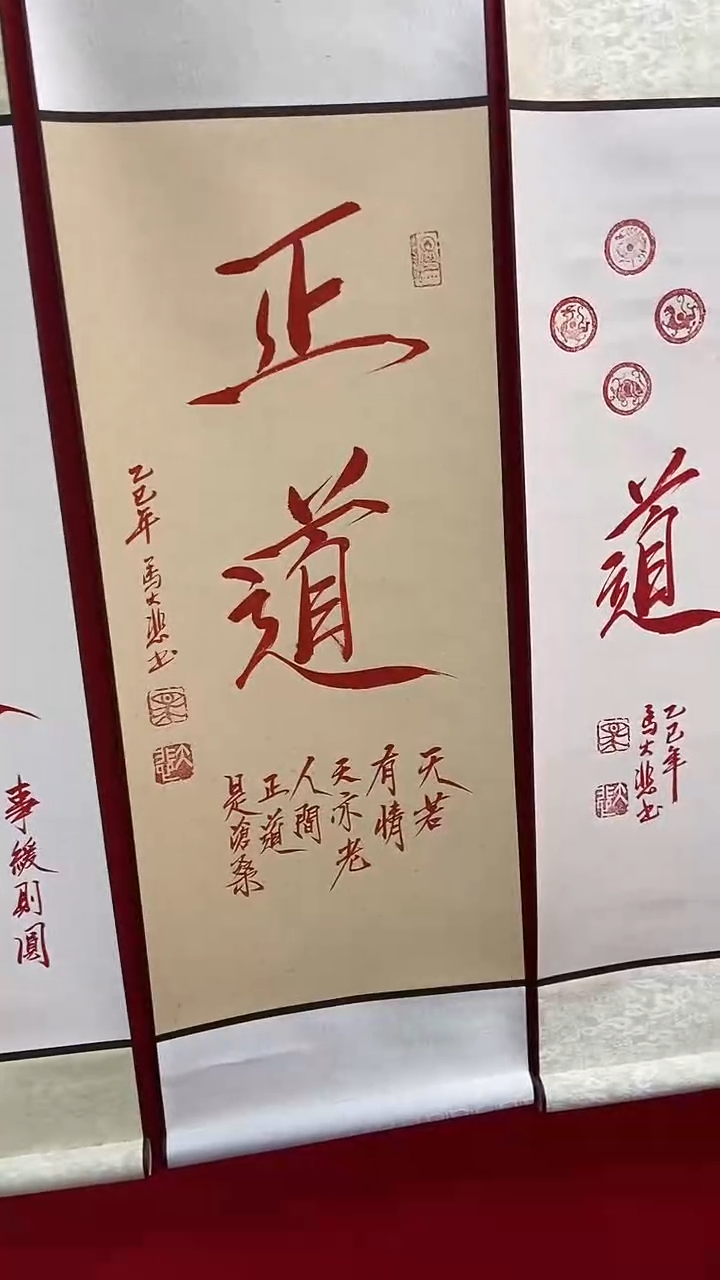 正道
天若
有情
天亦老
人間
正道
是滄桑
乙巳年 馬大悲书
道
乙巳年
馬大悲书
事緩則圓